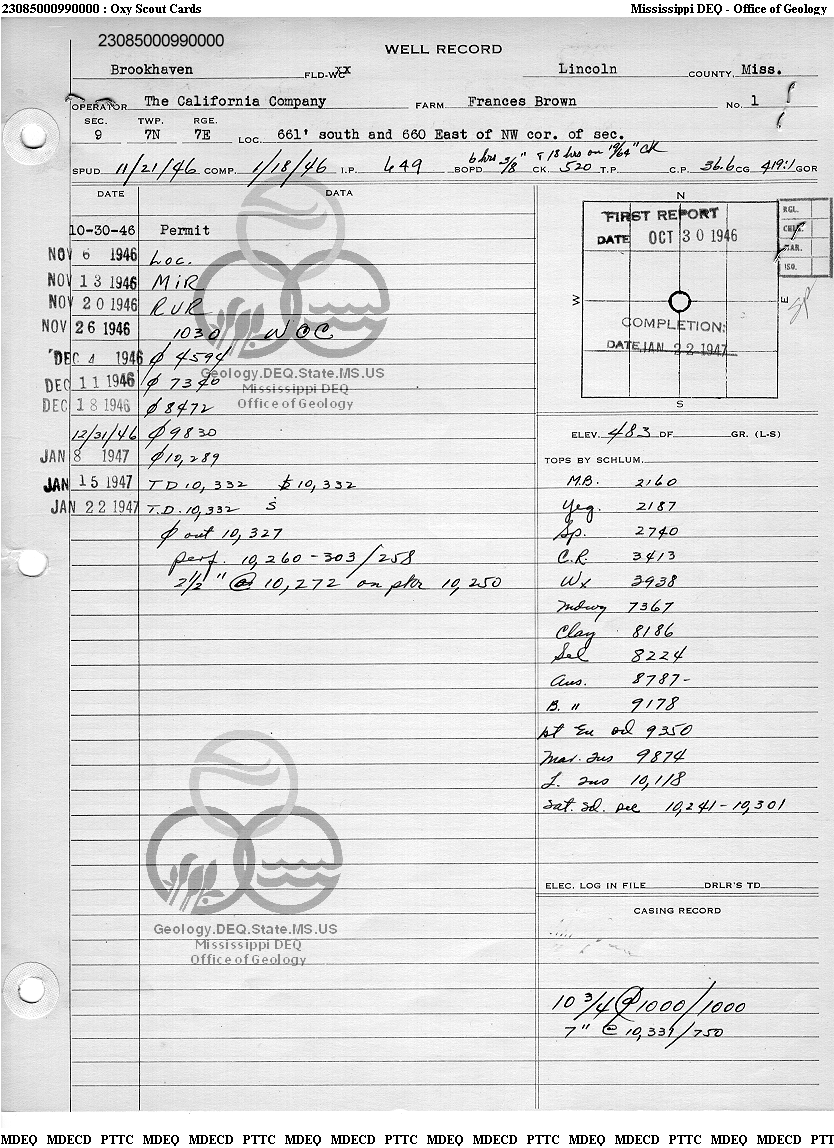 23085000990000 : Oxy Scout Cards Mississippi DEQ - Office of Geology
23085000990000
WELL RECORD
Brookhaven FLD-WC xx Lincoln COUNTY, Miss.
OPERATOR The California Company FARM Frances Brown No. 1
SEC. TWP. RGE.
9 7N 7E LOC. 661' south and 660 East of NW cor. of sec.
6 hrs 3/8" & 18 hrs on 19/64" CK
SPUD 11/21/46 COMP. 1/18/46 I.P. 649 BOPD CK. 520 T.P. C.P. 36.6 CG 419:1 GOR
DATE DATA
10-30-46 Permit
NOV 6 1946 Loc.
NOV 13 1946 MIR
NOV 20 1946 RUR
NOV 26 1946 1030 WOC
DEC 4 1946 φ 4594
DEC 11 1946 φ 7340
DEC 18 1946 φ 8472
12/31/46 φ 9830
JAN 8 1947 φ 10,289
JAN 15 1947 TD 10,332 10,332
JAN 22 1947 T.D. 10,332
φ out 10,327
perf. 10,260-303/258
2 1/2" @ 10,272 on pkr 10,250
Geology.DEQ.State.MS.US
Mississippi DEQ
Office of Geology
Geology.DEQ.State.MS.US
Mississippi DEQ
Office of Geology
N
FIRST REPORT
DATE OCT 30 1946
W E
COMPLETION:
DATE JAN 22 1947
S
RGL.
CHK.
MAR.
ISO.
SP
ELEV. 483 DF GR. (L-S)
TOPS BY SCHLUM.
M.B. 2160
Yeg. 2187
Sp. 2740
C.R. 3413
Wx 3938
Mdwy 7367
Clay 8186
Sel 8224
Aus. 8787-
B. " 9178
pt Eu sd 9350
Mar. Tus 9874
L. Tus 10,118
Sat. Sd. sec 10,241-10,301
ELEC. LOG IN FILE DRLR'S TD
CASING RECORD
10 3/4 @ 1000/1000
7" @ 10,331/750
MDEQ MDECD PTTC MDEQ MDECD PTTC MDEQ MDECD PTTC MDEQ MDECD PTTC MDEQ MDECD PTTC MDEQ MDECD PTT